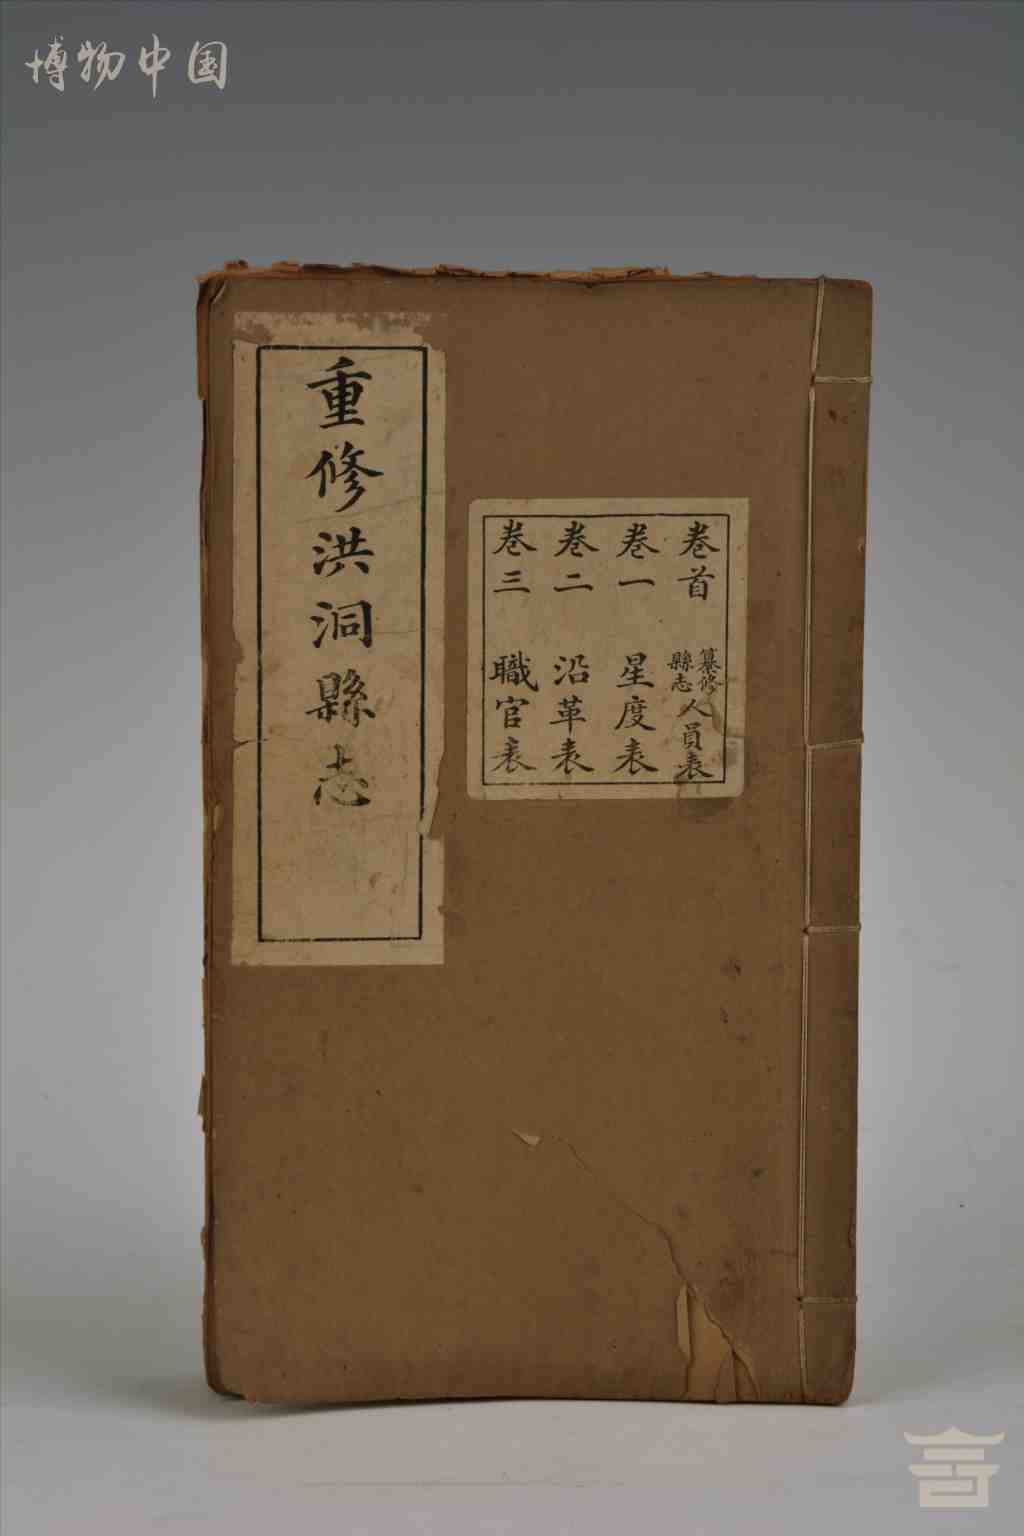 博物中国
重修洪洞縣志
卷首 纂修縣志人員表
卷一 星度表
卷二 沿革表
卷三 職官表